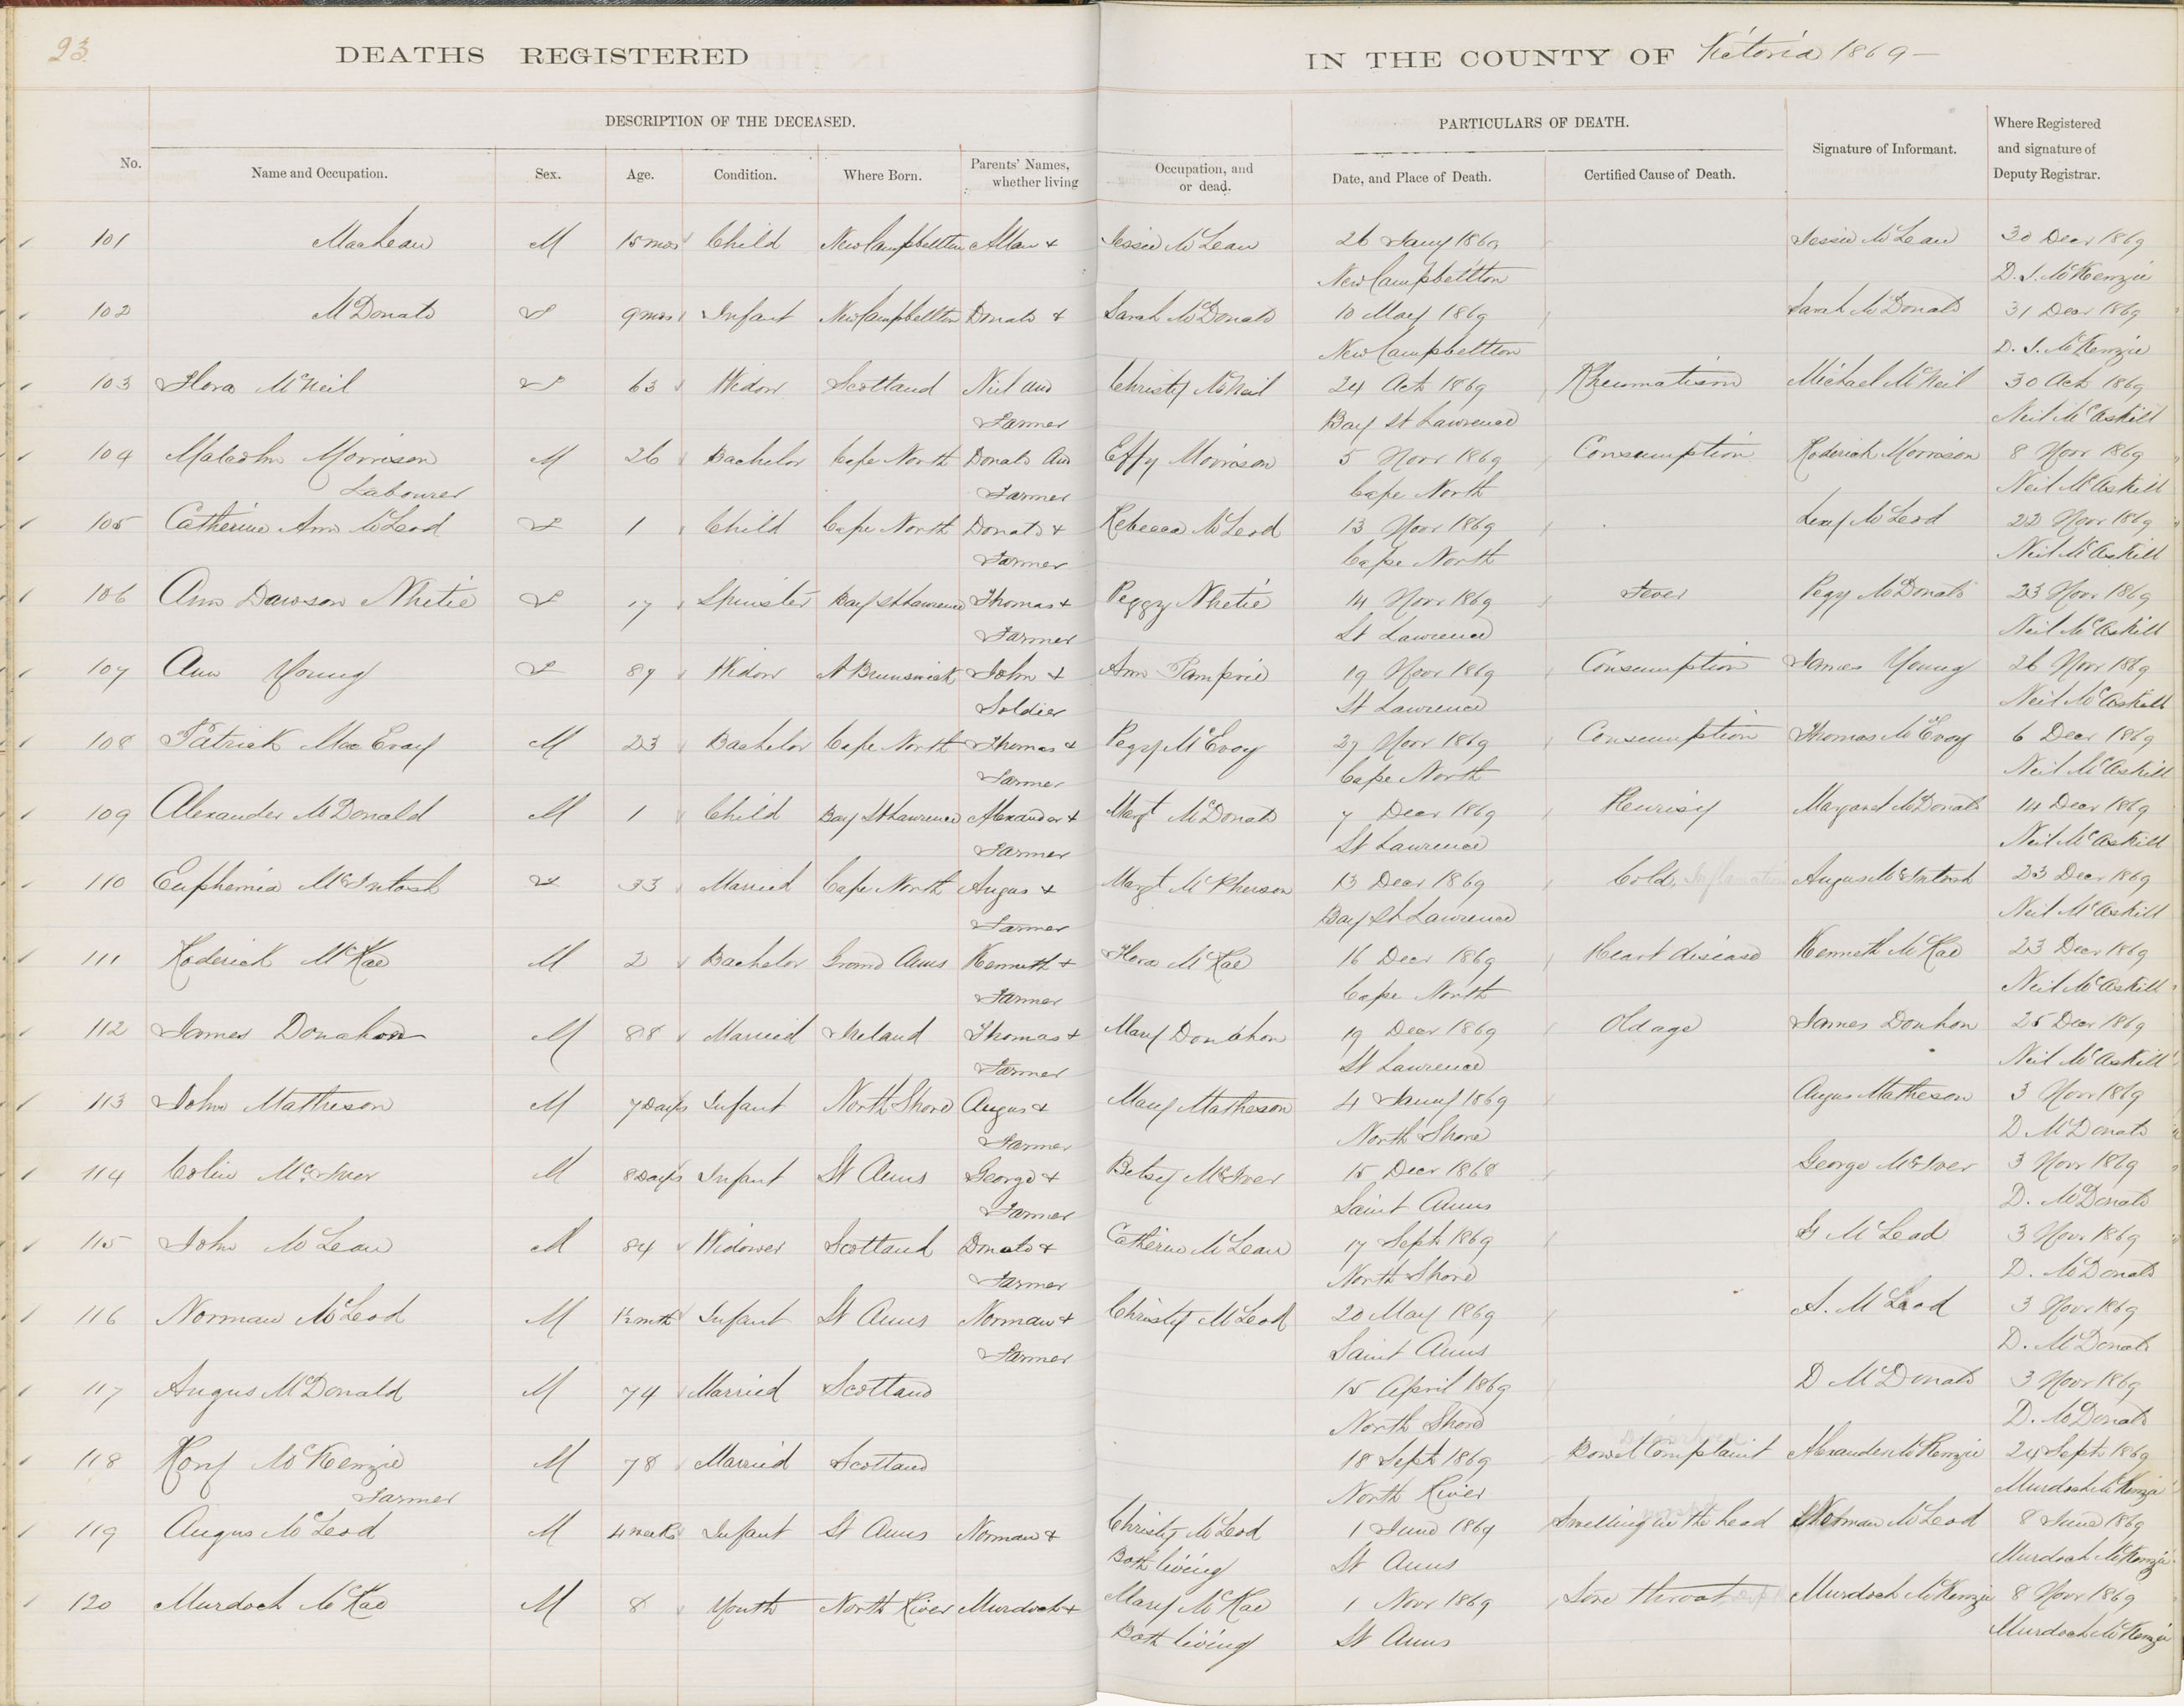 93.
DEATHS REGISTERED IN THE COUNTY OF Victoria 1869 –
DESCRIPTION OF THE DECEASED. PARTICULARS OF DEATH.
No. Name and Occupation. Sex. Age. Condition. Where Born. Parents' Names, whether living Occupation, and or dead. Date, and Place of Death. Certified Cause of Death. Signature of Informant. Where Registered and signature of Deputy Registrar.
101 MacLean M 15 mos Child New Campbellton Allan + Jessie McLean 26 Jany 1869 Jessie McLean 30 Decr 1869
New Campbellton D. J. McKenzie
102 McDonald F 9 mos Infant New Campbellton Donald + Sarah McDonald 10 May 1869 Sarah McDonald 31 Decr 1869
New Campbellton D. J. McKenzie
103 Flora McNeil F 63 Widow Scotland Niel and Christy McNeil 24 Oct 1869 Rheumatism Michael McNeil 30 Oct 1869
Farmer Bay St Lawrence Neil McAskill
104 Malcolm Morrison M 26 Bachelor Cape North Donald and Effy Morrison 5 Novr 1869 Consumption Roderick Morrison 8 Novr 1869
Labourer Farmer Cape North Neil McAskill
105 Catherine Ann McLeod F 1 Child Cape North Donald + Rebecca McLeod 13 Novr 1869 McLeod 22 Novr 1869
Farmer Cape North Neil McAskill
106 Ann Dawson Whitie F 17 Spinster Bay St Lawrence Thomas + Peggy Whitie 14 Novr 1869 Fever Pegy McDonald 23 Novr 1869
Farmer St Lawrence Neil McAskill
107 Ann Young F 87 Widow N Brunswick John + Ann 19 Novr 1869 Consumption James Young 26 Novr 1869
Soldier St Lawrence Neil McAskill
108 Patrick MacEvoy M 23 Bachelor Cape North Thomas + Pegy McEvoy 27 Novr 1869 Consumption Thomas McEvoy 6 Decr 1869
Farmer Cape North Neil McAskill
109 Alexander McDonald M 1 Child Bay St Lawrence Alexander + Margt McDonald 7 Decr 1869 Pleurisy Margaret McDonald 14 Decr 1869
Farmer St Lawrence Neil McAskill
110 Euphemia McIntosh F 33 Married Cape North Angus + Margt McPherson 13 Decr 1869 Cold, Inflamation Angus McIntosh 23 Decr 1869
Farmer Bay St Lawrence Neil McAskill
111 Roderick McRae M 2 Bachelor Grand Anns Kenneth + Flora McRae 16 Decr 1869 Heart disease Kenneth McRae 23 Decr 1869
Farmer Cape North Neil McAskill
112 James Donahon M 88 Married Ireland Thomas + Mary Donahon 19 Decr 1869 Old age James Donhon 25 Decr 1869
Farmer St Lawrence Neil McAskill
113 John Matheson M 7 Days Infant North Shore Angus + Mary Matheson 4 Jany 1869 Angus Matheson 3 Novr 1869
Farmer North Shore D McDonald
114 Colin McIver M 8 Days Infant St Anns George + Betsey McIver 15 Decr 1868 George McIver 3 Novr 1869
Farmer Saint Anns D. McDonald
115 John McLean M 84 Widower Scotland Donald + Catherine McLean 17 Sept 1869 McLeod 3 Nov. 1869
Farmer North Shore D. McDonald
116 Norman McLeod M 1½ mth Infant St Anns Norman + Christy McLeod 20 May 1869 A. McLeod 3 Novr 1869
Farmer Saint Anns D. McDonald
117 Angus McDonald M 74 Married Scotland 15 April 1869 D McDonald 3 Novr 1869
North Shore D. McDonald
118 Rory McKenzie M 78 Married Scotland 18 Sept 1869 Bowel Complaint Alexander McKenzie 24 Sept 1869
Farmer North River Murdoch McKenzie
119 Angus McLeod M 4 weeks Infant St Anns Norman + Christy McLeod 1 June 1869 Swelling in the head Norman McLeod 8 June 1869
Both living St Anns Murdoch McKenzie
120 Murdoch McRae M 8 Youth North River Murdoch + Mary McRae 1 Novr 1869 Sore throat Murdoch McKenzie 8 Novr 1869
Both living St Anns Murdoch McKenzie